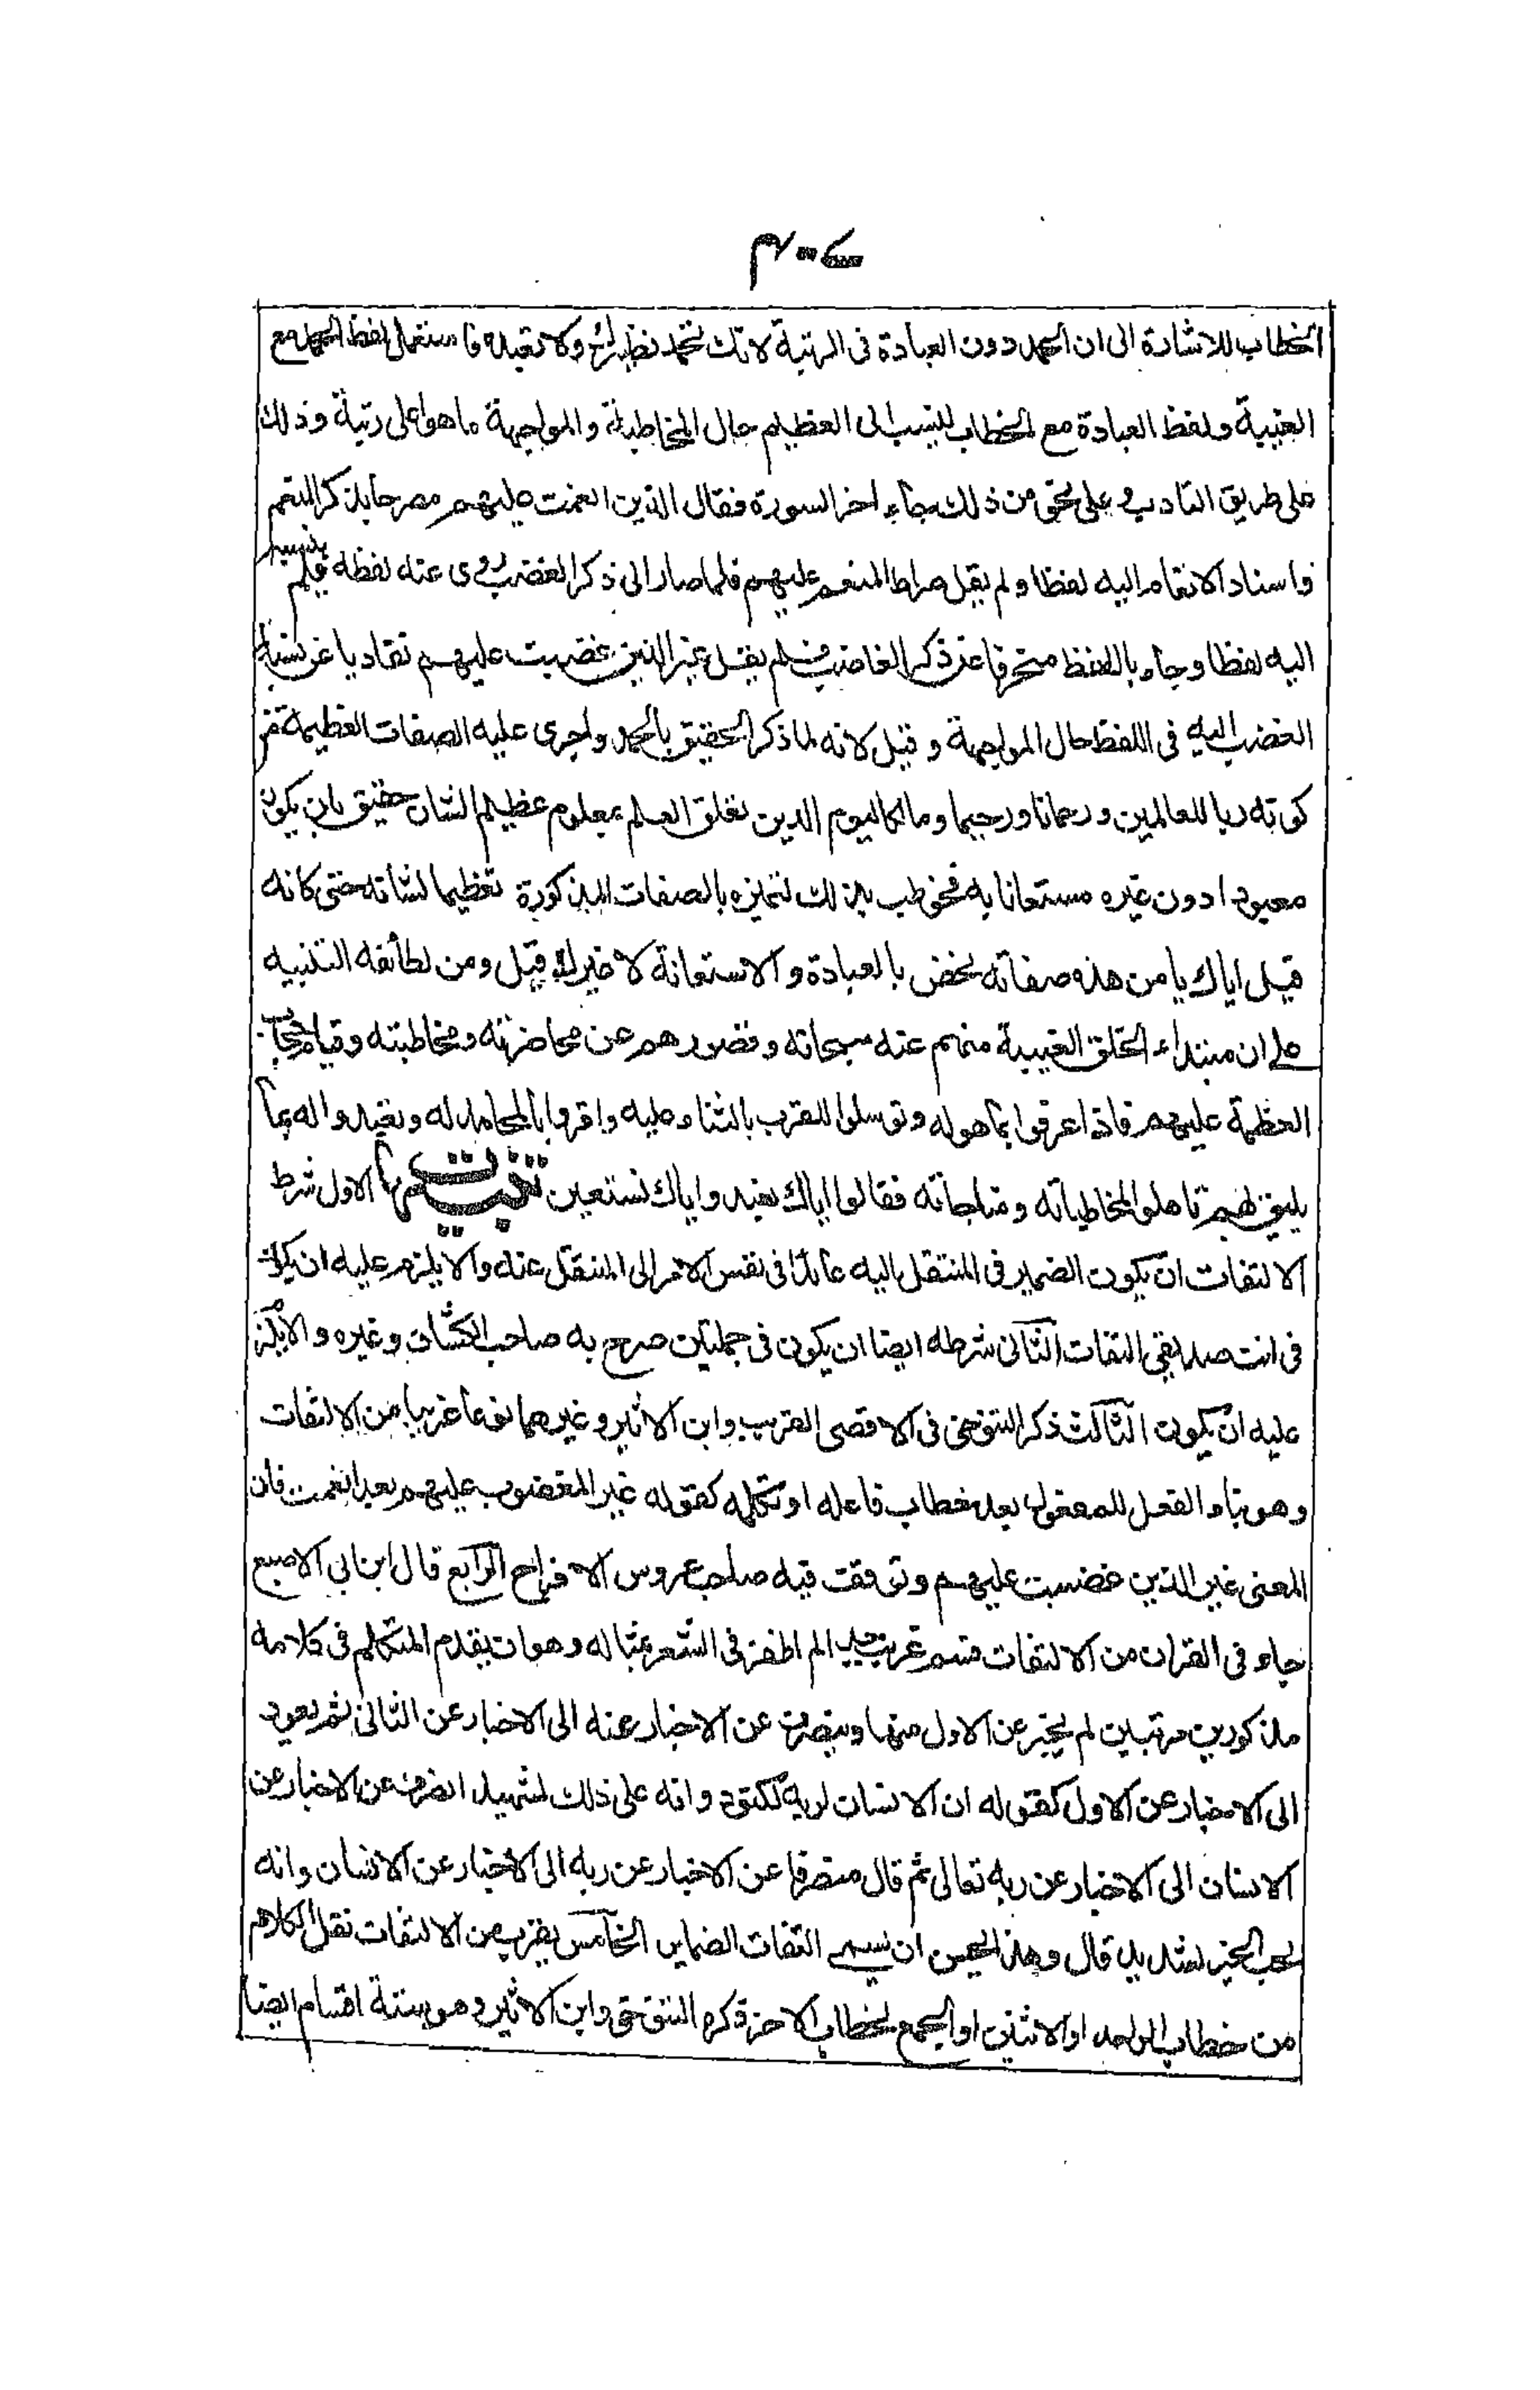 ٣٠٤
الخطاب للاشارة الى ان الحمد دون العبادة فى الرتبة لانك تحمد نظيرك ولا تعبده فاستعمل لفظ الحمد مع
الغيبة ولفظ العبادة مع الخطاب لينسب الى العظيم حال المخاطبة والمواجهة ما هو اعلى رتبة وذلك
على طريق التادب وعلى نحو من ذلك جاء اخر السورة فقال الذين انعمت عليهم مصرحا بذكر المنعم
واسناد الانعام اليه لفظا ولم يقل صراط المنعم عليهم فلما صار الى ذكر الغضب زوى عنه لفظه فلم ينسبه
اليه لفظا وجاء باللفظ منحرفا عن ذكر الغاضب فلم يقل غير الذين غضبت عليهم تفاديا عن نسبة
الغضب اليه فى اللفظ حال المواجهة وقيل لانه لما ذكر الحقيق بالحمد واجرى عليه الصفات العظيمة من
كونه ربا للعالمين ورحمانا ورحيما ومالكا ليوم الدين تعلق العلم بمعلوم عظيم الشان حقيق بان يكون
معبودا دون غيره مستعانا به فخوطب بذلك لتميزه بالصفات المذكورة تعظيما لشانه حتى كانه
قيل اياك يا من هذه صفاته نخص بالعبادة والاستعانة لا غيرك قيل ومن لطائفه التنبيه
على ان مبتداء الخلق الغيبة منهم عنه سبحانه وقصورهم عن محاضرته ومخاطبته وقيام حجاب
العظمة عليهم فاذا عرفوا بما هو له وتوسلوا للقرب بالثناء عليه واقروا بالمحامد له وتعبدوا له بما
يليق لهم تاهلوا لمخاطباته ومناجاته فقالوا اياك نعبد واياك نستعين تنبيهات الاول شرط
الالتفات ان يكون الضمير فى المنتقل اليه عائدا فى نفس الامر الى المنتقل عنه والا يلزم عليه ان يكون
فى انت صديقى التفات الثانى شرطه ايضا ان يكون فى جملتين صرح به صاحب الكشاف وغيره والا يلزم
عليه ان يكون الثالث ذكر التنوخى فى الاقصى القريب وابن الاثير وغيرهما نوعا غريبا من الالتفات
وهو بناء الفعل للمفعول بعد خطاب فاعله او تكلمه كقوله غير المغضوب عليهم بعد انعمت فان
المعنى غير الذين غضبت عليهم وتوقف فيه صاحب عروس الافراح الرابع قال ابن ابى الاصبع
جاء فى القران من الالتفات قسم غريب جدا لم اظفر فى الشعر بمثاله وهو ان يقدم المتكلم فى كلامه
مذكورين مرتبين لم يخبر عن الاول منهما وينصرف عن الاخبار عنه الى الاخبار عن الثانى ثم يعود
الى الاخبار عن الاول كقوله ان الانسان لربه لكنود وانه على ذلك لشهيد انصرف عن الاخبار عن
الانسان الى الاخبار عن ربه تعالى ثم قال منصرفا عن الاخبار عن ربه الى الاخبار عن الانسان وانه
لحب الخير لشديد قال وهذا يحسن ان يسمى التفات الضمائر الخامس يقرب من الالتفات نقل الكلام
من خطاب الواحد او الاثنين او الجمع لخطاب الاخر ذكره التنوخى وابن الاثير وهو ستة اقسام ايضا